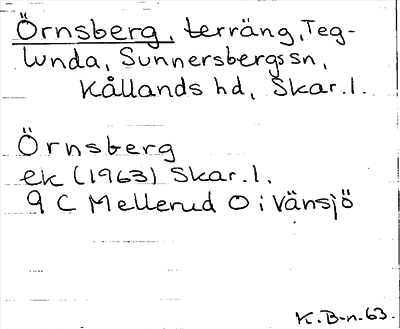 Örnsberg, terräng, Teg-
lunda, Sunnersbergs sn,
Kållands hd, Skar. l.
Örnsberg
ek (1963) Skar. l.
9 C Mellerud O i Vänsjö
K. B-n-63.